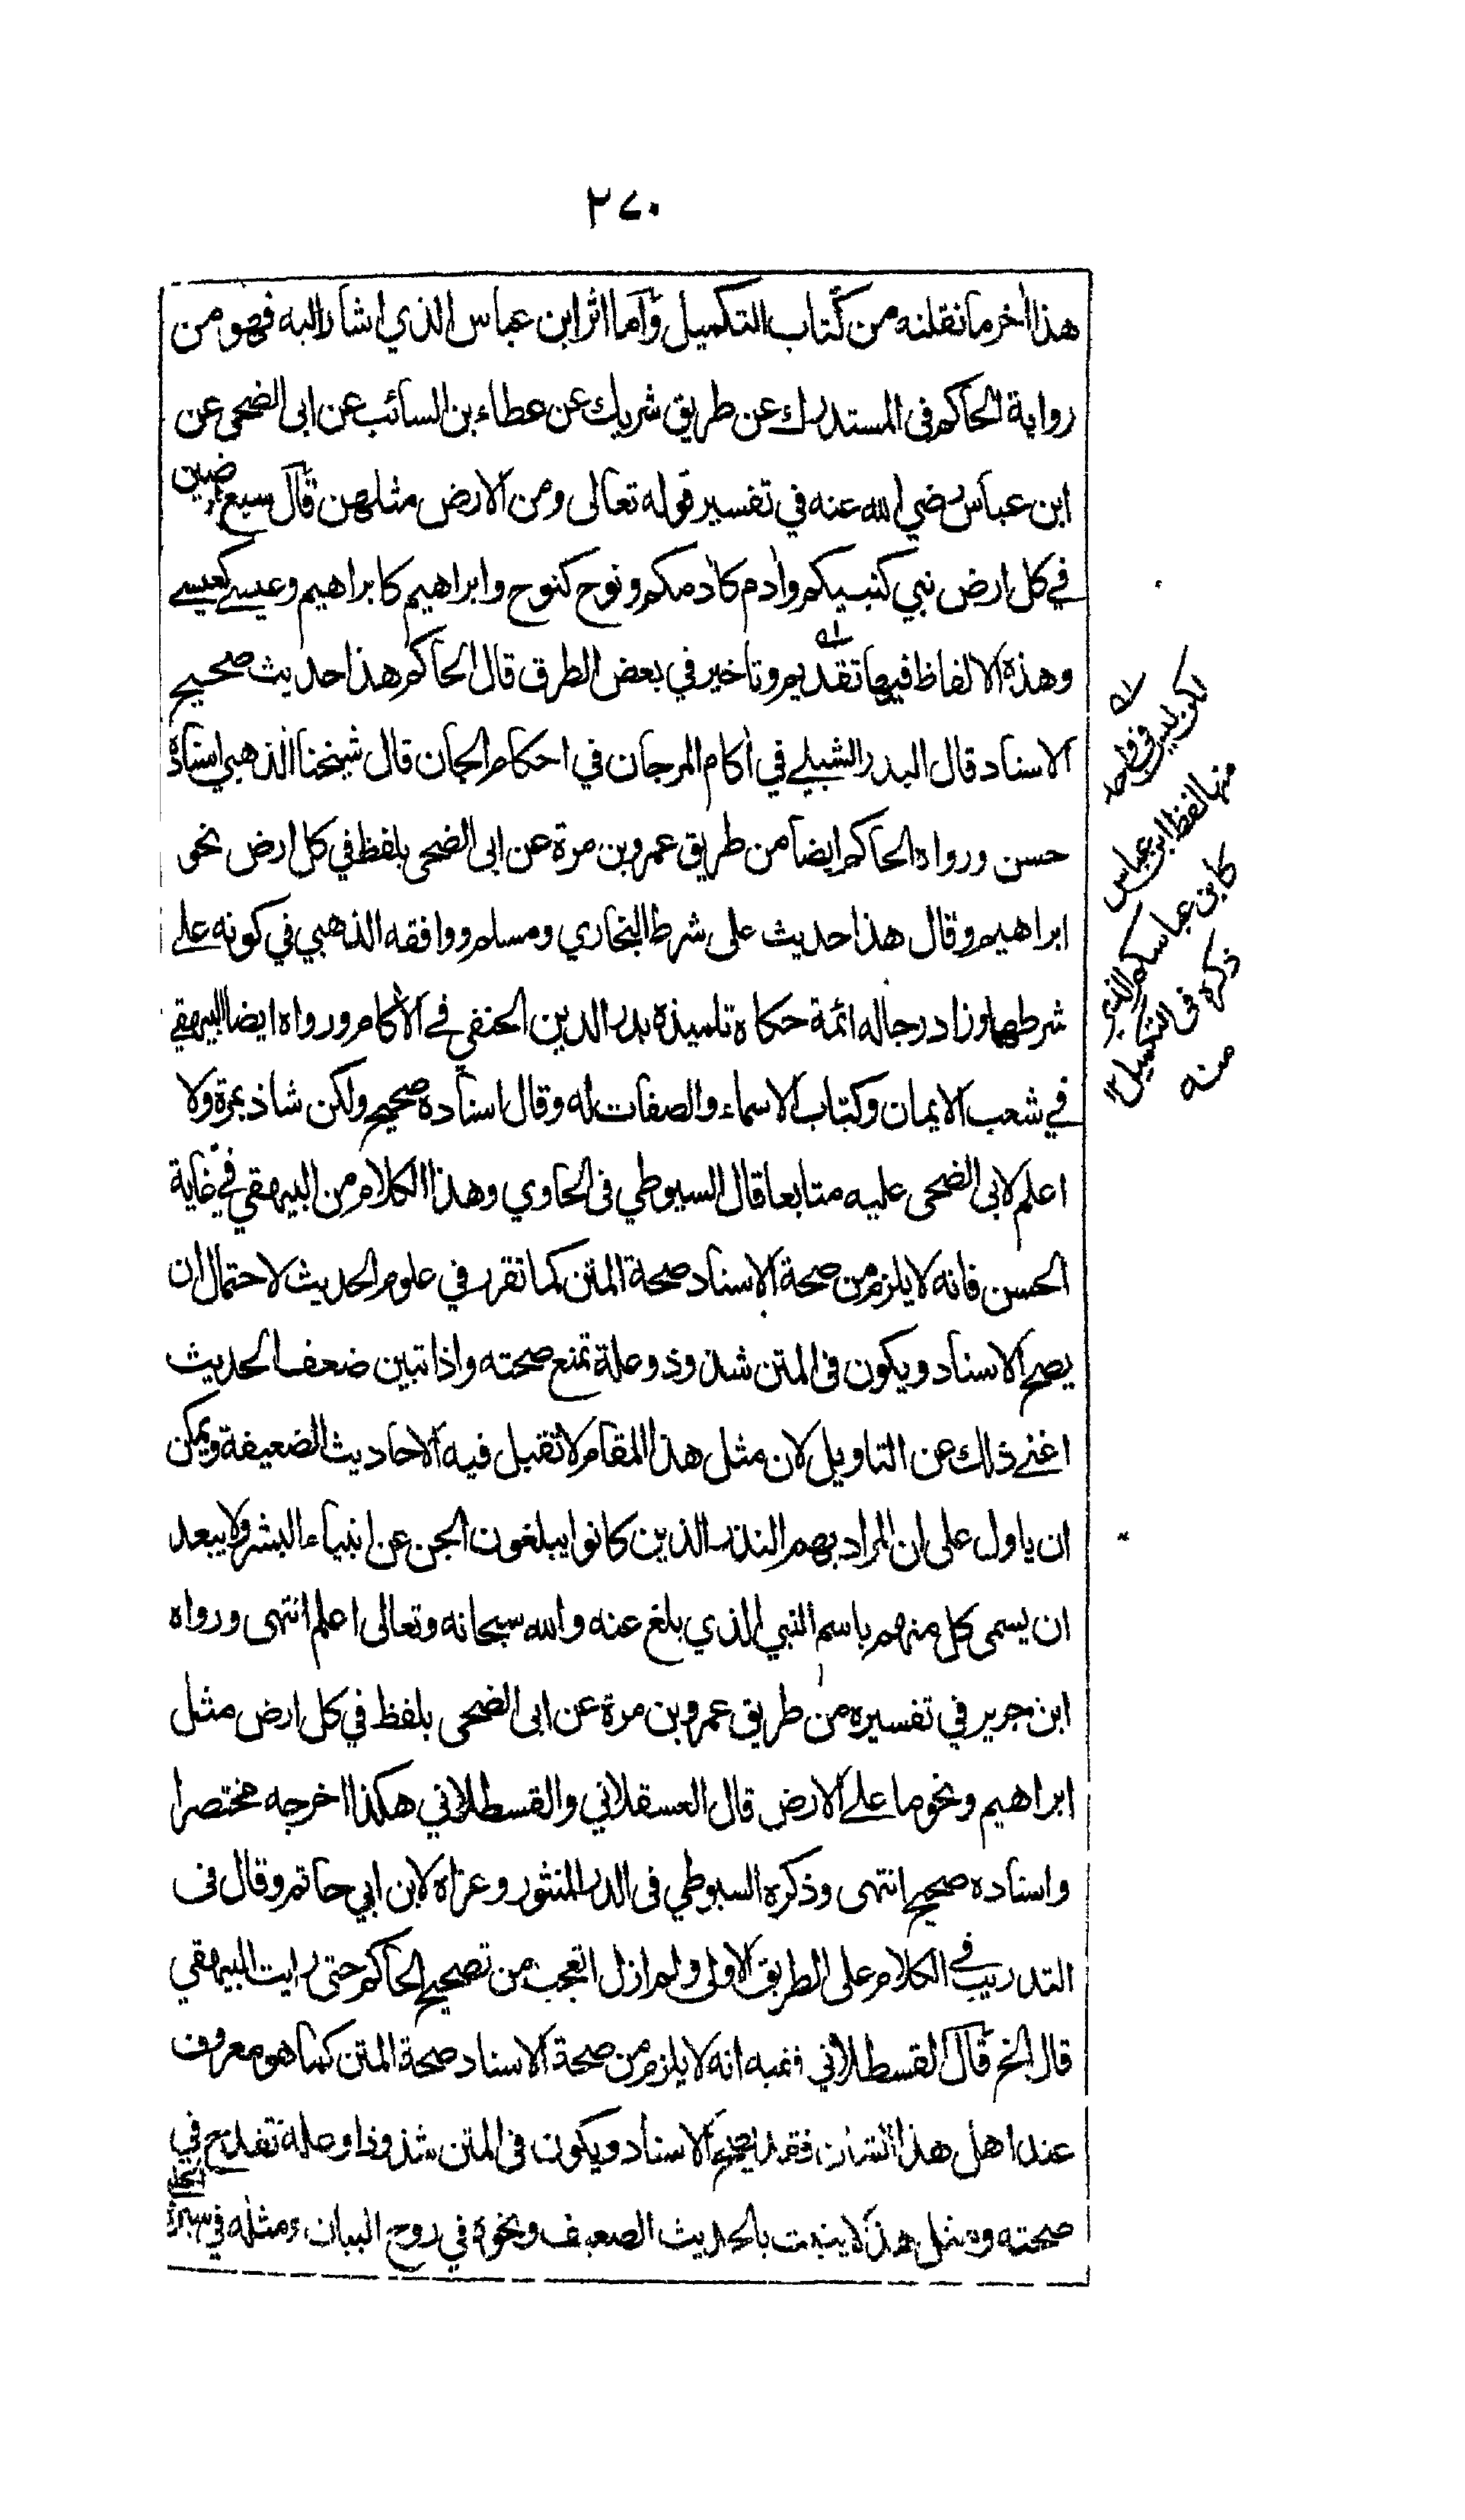 ٢٧٠
هذا اٰخر ما نقلته من كتاب التكميل وآما اثر ابن عباس الذي اشار اليه فهو من
رواية الحاكم فى المستدرك عن طريق شريك عن عطاء بن السائب عن ابى الضحى عن
ابن عباس رضي الله عنه في تفسير قوله تعالى ومن الارض مثلهن قال سبع ارضين
في كل ارض نبي كنبيكم واٰدم كاٰدمكم ونوح كنوح وابراهيم كابراهيم وعيسے كعيسے
وهذه الالفاظ فيها تقديم وتاخير في بعض الطرق قال الحاكم هذا حديث صحيح
الاسناد قال البدر الشبلے في اٰكام المرجان في احكام الجان قال شيخنا الذهبي اسناده
حسن ورواه الحاكم ايضا من طريق عمرو بن مرة عن ابى الضحى بلفظ في كل ارض نحو
ابراهيم وقال هذا حديث على شرط البخاري ومسلم ووافقه الذهبي في كونه علے
شرطهما وزاد رجاله ائمة حكاه تلميذه بدر الدين الحنفي في الاٰكام ورواه ايضا البيهقي
في شعب الايمان وكتاب الاسماء والصفات له وقال اسناده صحيح ولكن شاذ بمرة ولا
اعلم لابى الضحى عليه متابعا قال السيوطي فى الحاوي وهذا الكلام من البيهقي في غاية
الحسن فانه لا يلزم من صحة الاسناد صحة المتن كما تقرر في علوم الحديث لاحتمال ان
يصح الاسناد ويكون فى المتن شذوذ وعلة تمنع صحته واذا تبين ضعف الحديث
اغنے ذلك عن التاويل لان مثل هذا المقام لا تقبل فيه الاحاديث الضعيفة ويمكن
ان ياول على ان المراد بهم النذر الذين كانوا يبلغون الجن عن انبياء البشر ولا يبعد
ان يسمى كل منهم باسم النبي الذي بلغ عنه والله سبحانه وتعالى اعلم انتهى ورواه
ابن جرير في تفسيره من طريق عمرو بن مرة عن ابى الضحى بلفظ في كل ارض مثل
ابراهيم ونحو ما علے الارض قال العسقلاني والقسطلاني هكذا اخرجه مختصرا
واسناده صحيح انتهى وذكره السيوطي فى الدر المنثور وعزاه لابن ابي حاتم وقال فى
التدريب في الكلام على الطريق الاولى ولم ازل اتعجب من تصحيح الحاكم حتى رايت البيهقي
قال الخ قال القسطلاني ففيه انه لا يلزم من صحة الاسناد صحة المتن كما هو معروف
عند اهل هذا الشان فقد يصح الاسناد ويكون فى المتن شذوذا وعلة تقدح في
صحته ومثل هذا لا يثبت بالحديث الضعيف ونحوه في روح البيان ومثله في سيرة الحلبي
لكن ليس في واحد
منها لفظ ابن عباس
كابن عباسكم الذي
ذكره فى التكميل ١٢
منه